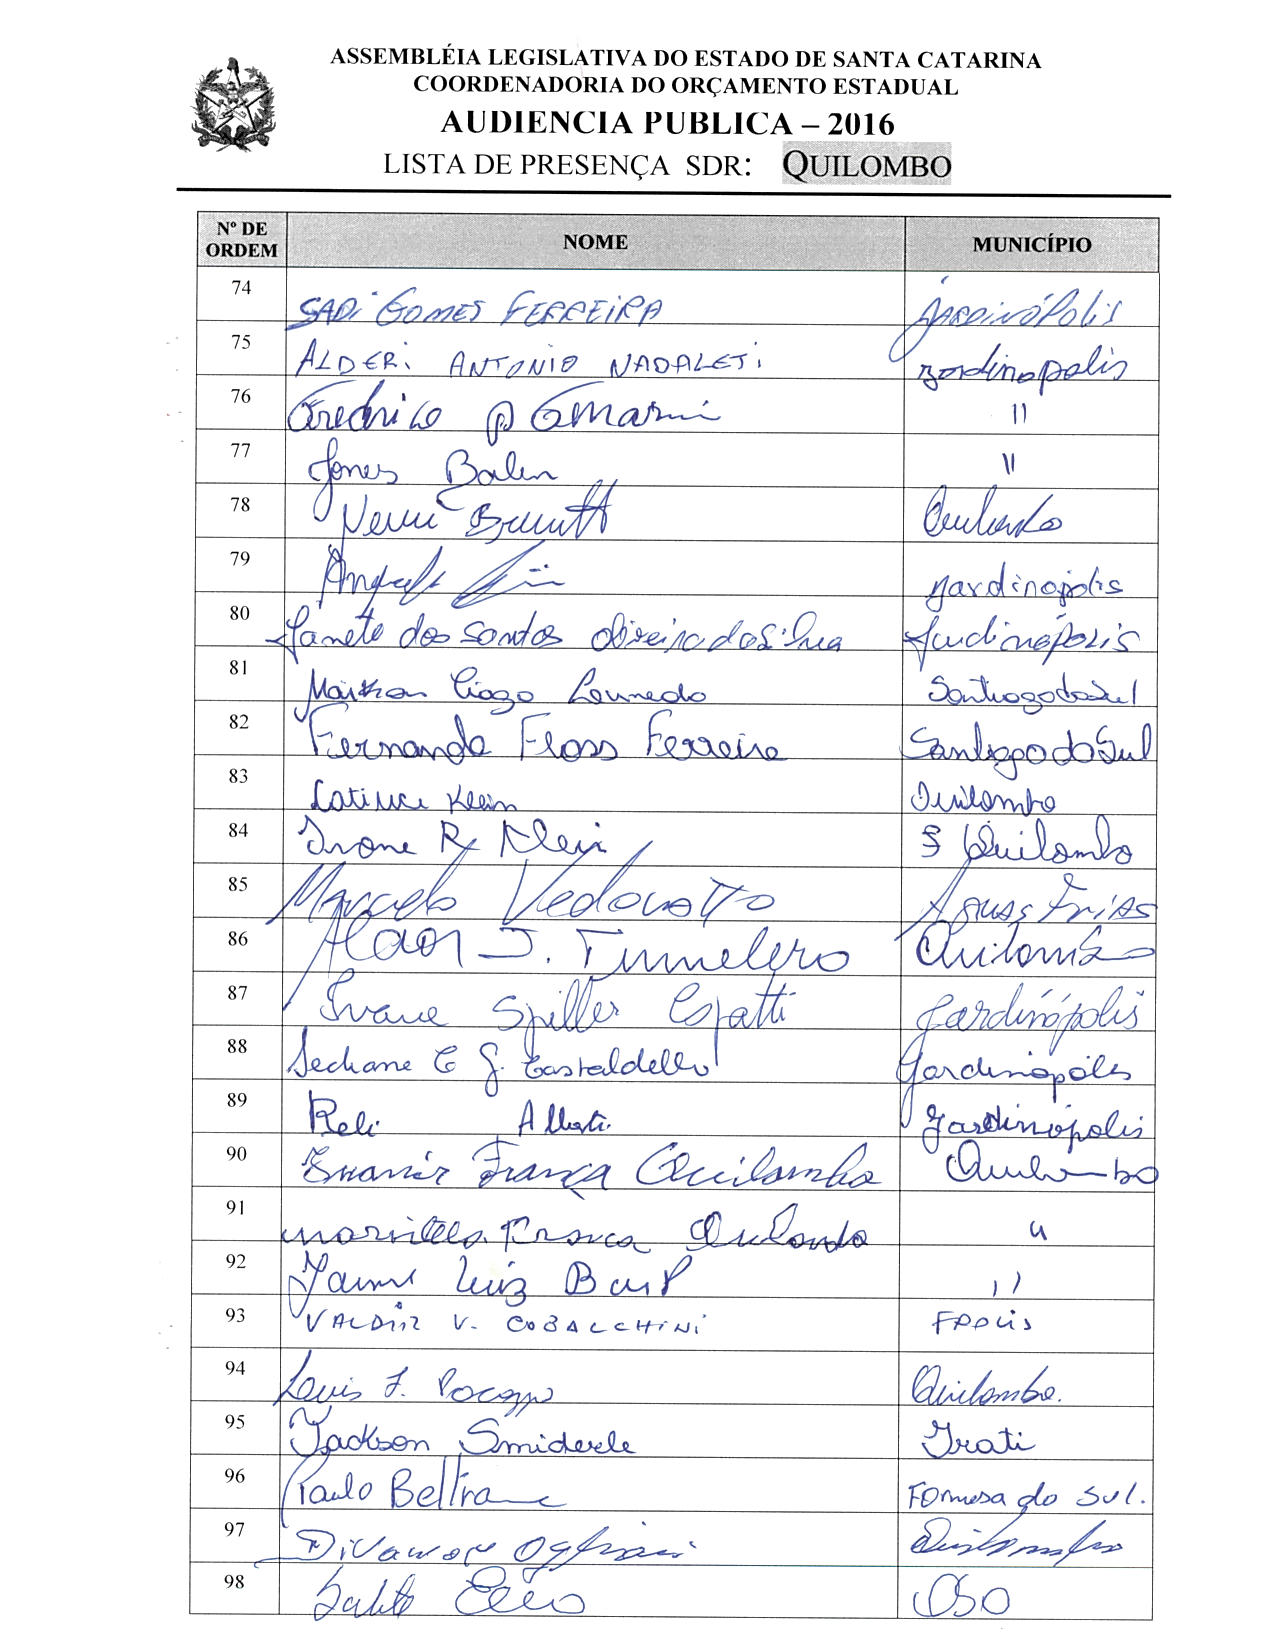 ASSEMBLÉIA LEGISLATIVA DO ESTADO DE SANTA CATARINA
COORDENADORIA DO ORÇAMENTO ESTADUAL
AUDIENCIA PUBLICA – 2016
LISTA DE PRESENÇA SDR: QUILOMBO
Nº DE ORDEM NOME MUNICÍPIO
74 SADI GOMES FERREIRA JARDINÓPOLIS
75 ALDERI ANTONIO NADALETI Jardinopolis
76 Fredrico "
77 Jones Balen "
78 Quilombo
79 Jardinopolis
80 Janete dos Santos Oliveira da Silva Jardinópolis
81 Tiago Santiago do Sul
82 Fernanda Floss Ferreira Santiago do Sul
83 Klein Quilombo
84 Ivone R. Klein Quilombo
85 Marcelo Vedovatto Aguas Frias
86 Alaor J. Tumelero Quilombo
87 Ivane Spiller Jardinópolis
88 C G. Castaldello Jardinópolis
89 Reli Alberti Jardinópolis
90 França Quilombo Quilombo
91 Franca Quilombo "
92 Jaime Luiz "
93 VALDIR V. COBALCHINI FPOLIS
94 Quilombo.
95 Jackson Smiderle Irati
96 Paulo Beltrame Formosa do Sul.
97 Quilombo
98